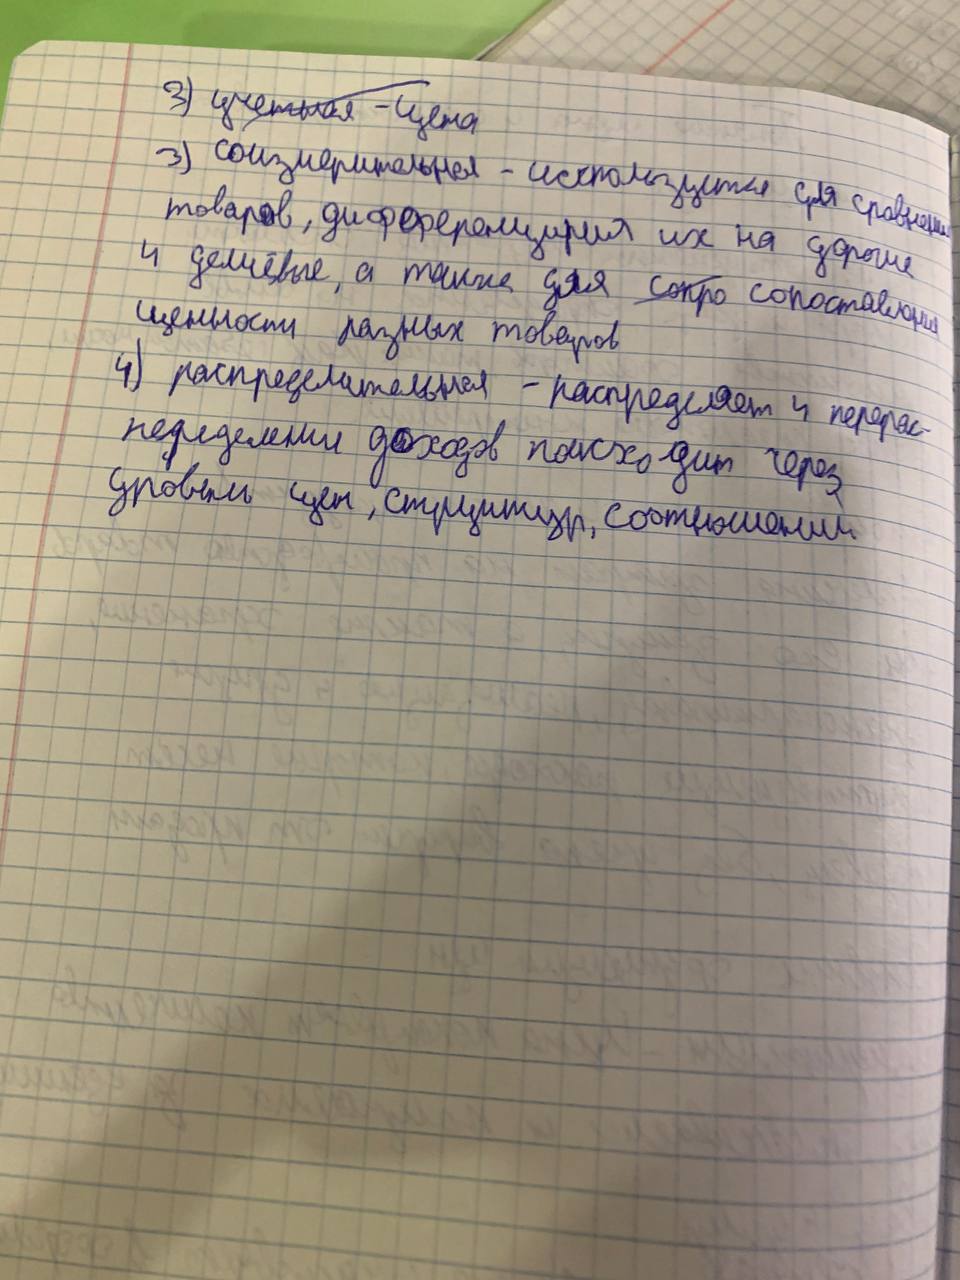 3) учетная - цена
3) соизмерительная - используется для сравнения
товаров, дифференцируя их на дорогие
и дешёвые, а также для сопро сопоставления
ценности разных товаров
4) распределительная - распределяет и перерас-
переделение доходов поисходит через
уровень цен, структур, соотношений